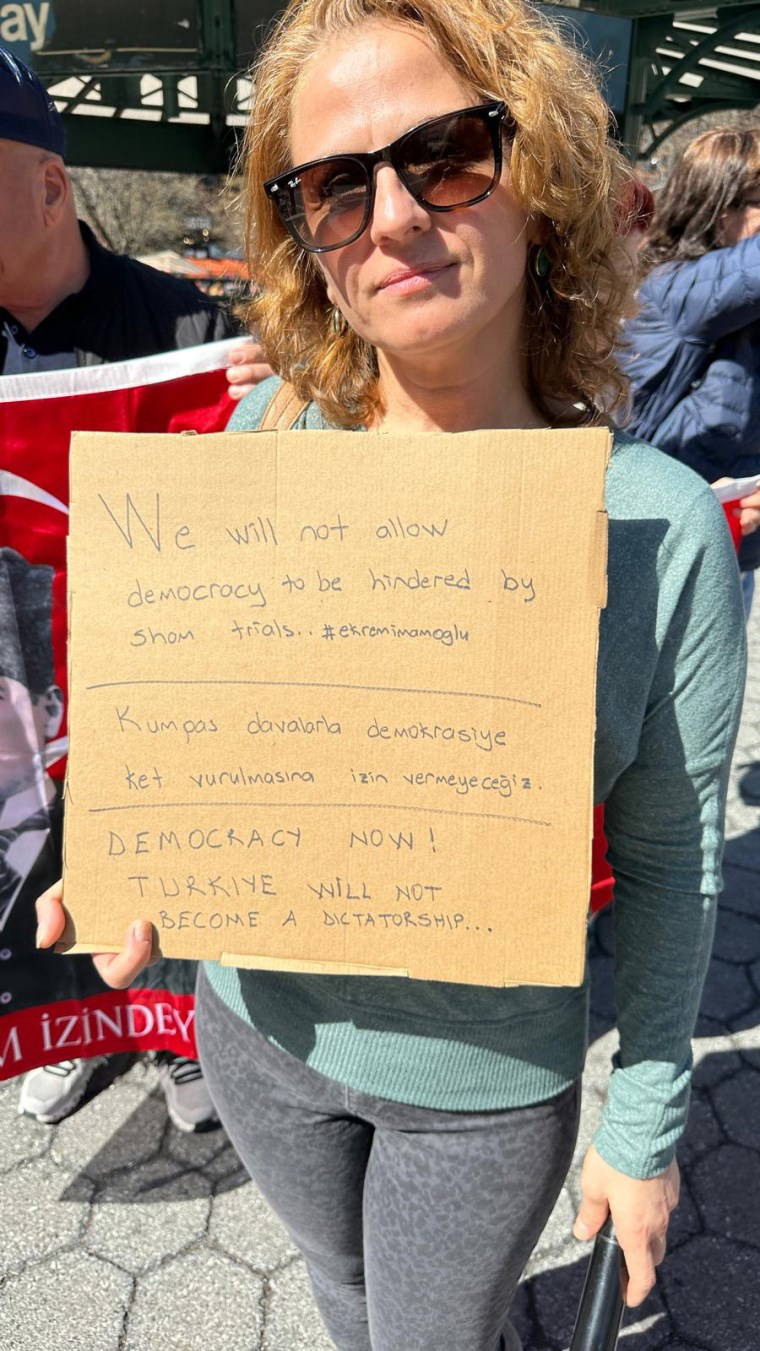 ay
We will not allow
democracy to be hindered by
sham trials.. #ekremimamoglu
Kumpas davalarla demokrasiye
ket vurulmasına izin vermeyeceğiz.
DEMOCRACY NOW!
TURKIYE WİLL NOT
BECOME A DICTATORSHIP...
M İZİNDEY
Ray-Ban